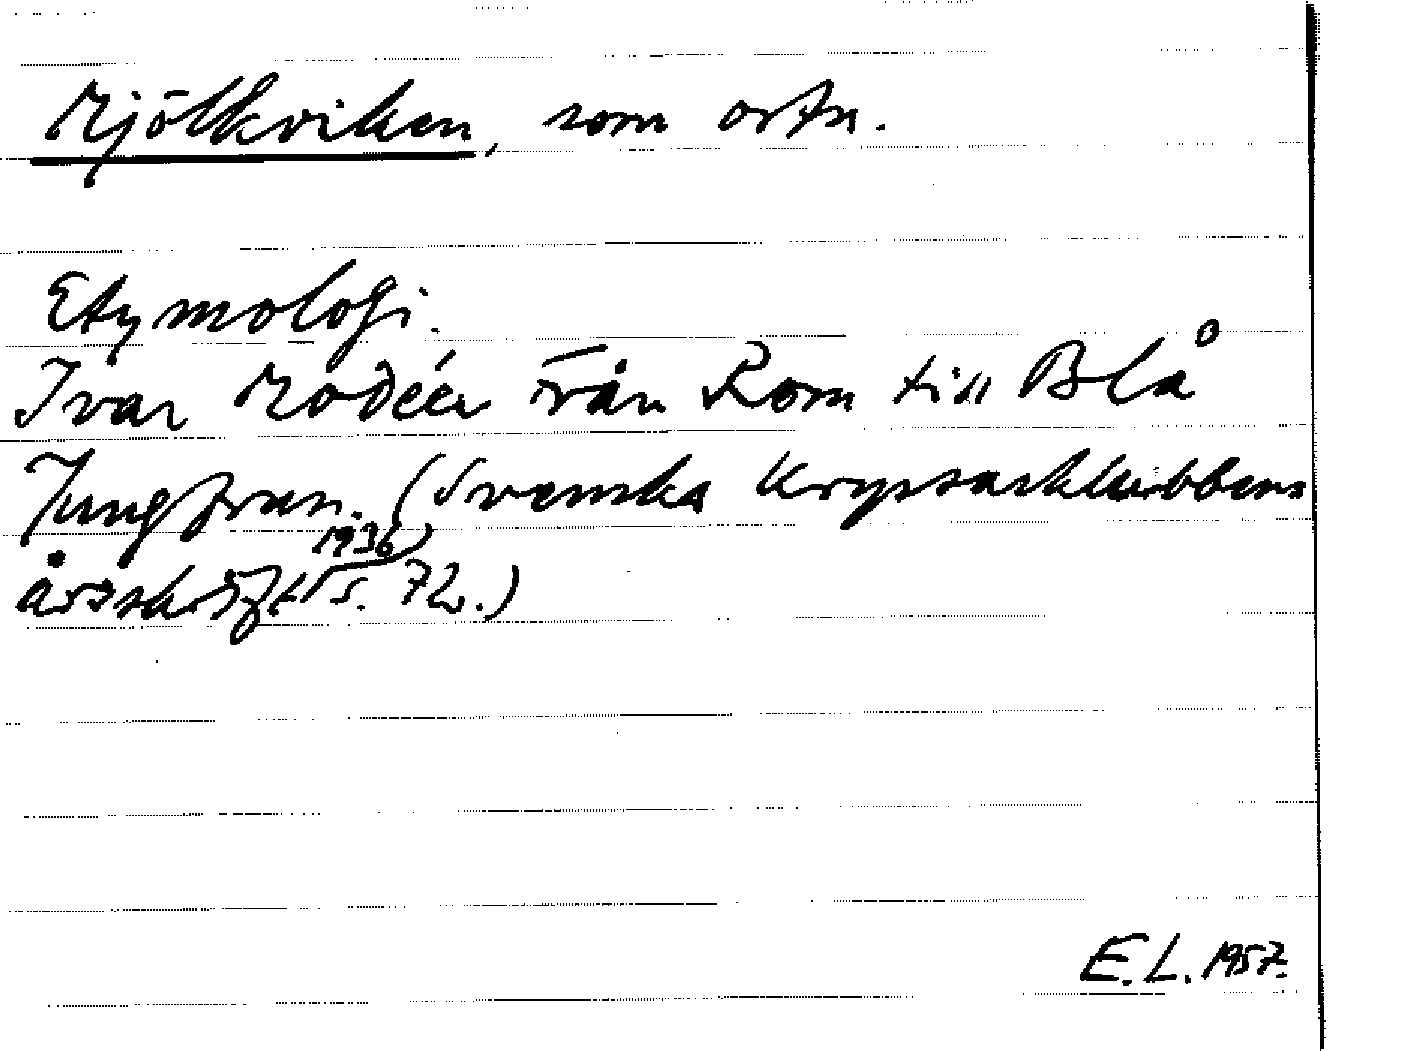 Mjölkviken, som ortn.
Etymologi.
Ivar Modéer Från Rom till Blå
Jungfrun. (Svenska Kryssarklubbens
årsskrift 1936) s. 72.)
E.L. 1957.